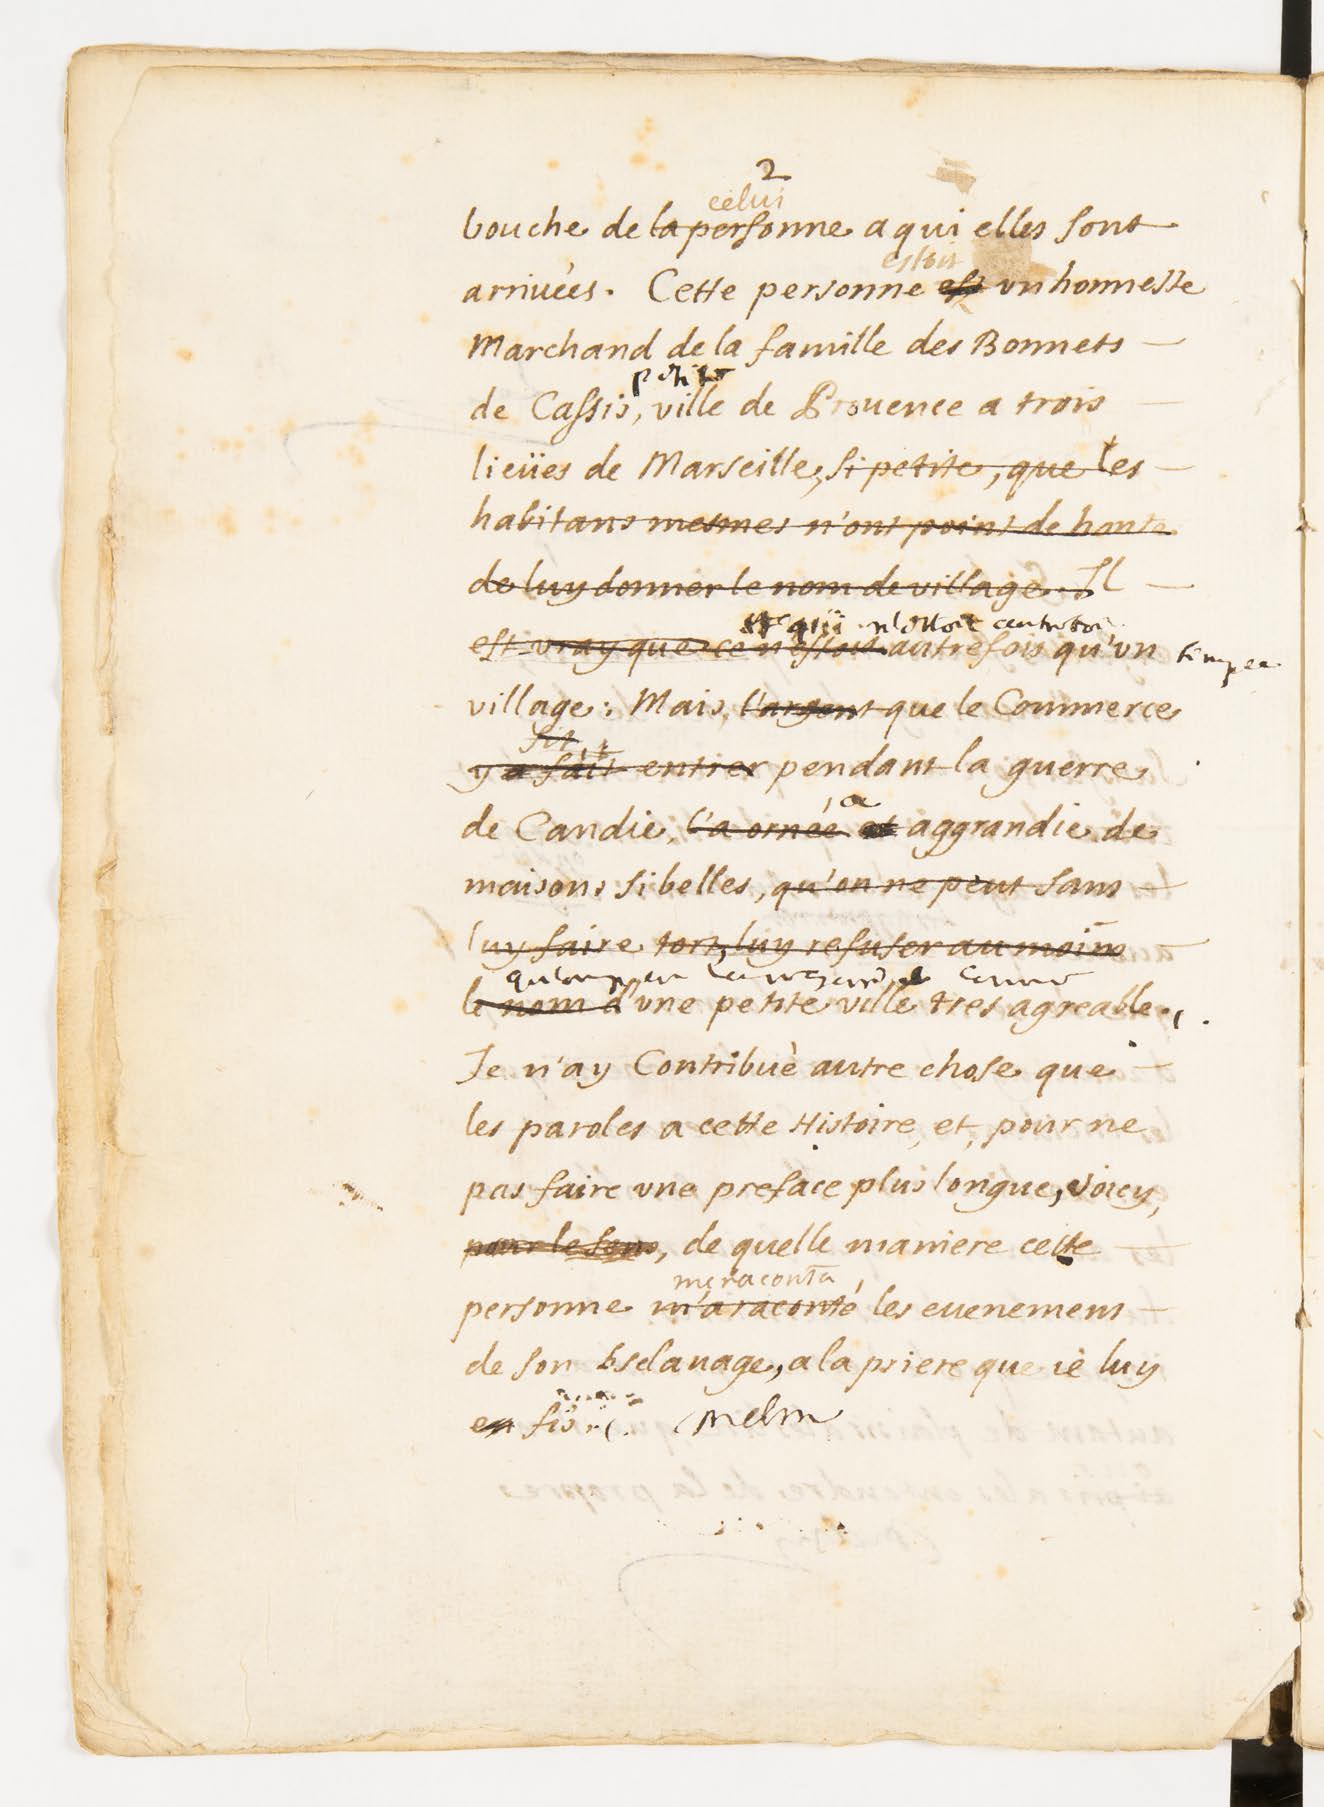 2
celui
bouche de la personne a qui elles sont
estoit
arriuées. Cette personne est vn honneste
Marchand de la famille des Bonnets
petite
de Cassis, ville de Prouence a trois
lieües de Marseille, si petite, que les
habitans mesmes n'ont point de honte
de luy donner le nom de village. Il
qui n'estoit autrefois
est vray que ce n'estoit autrefois qu'vn simple
village: Mais, l'argent que le Commerce
fit
y a fait entrer pendant la guerre
a
de Candie, l'a ornée et aggrandie de
maisons si belles, qu'on ne peut sans
luy faire tort, luy refuser au moins
comme
le nom d'vne petite ville tres agreable.
Je n'ay Contribué autre chose que
les paroles a cette Histoire, et, pour ne
pas faire vne preface plus longue, voicy,
pour le sens, de quelle maniere cette
me raconta
personne m'a raconté les euenemens
de son Esclauage, a la priere que ie luy
en fis.